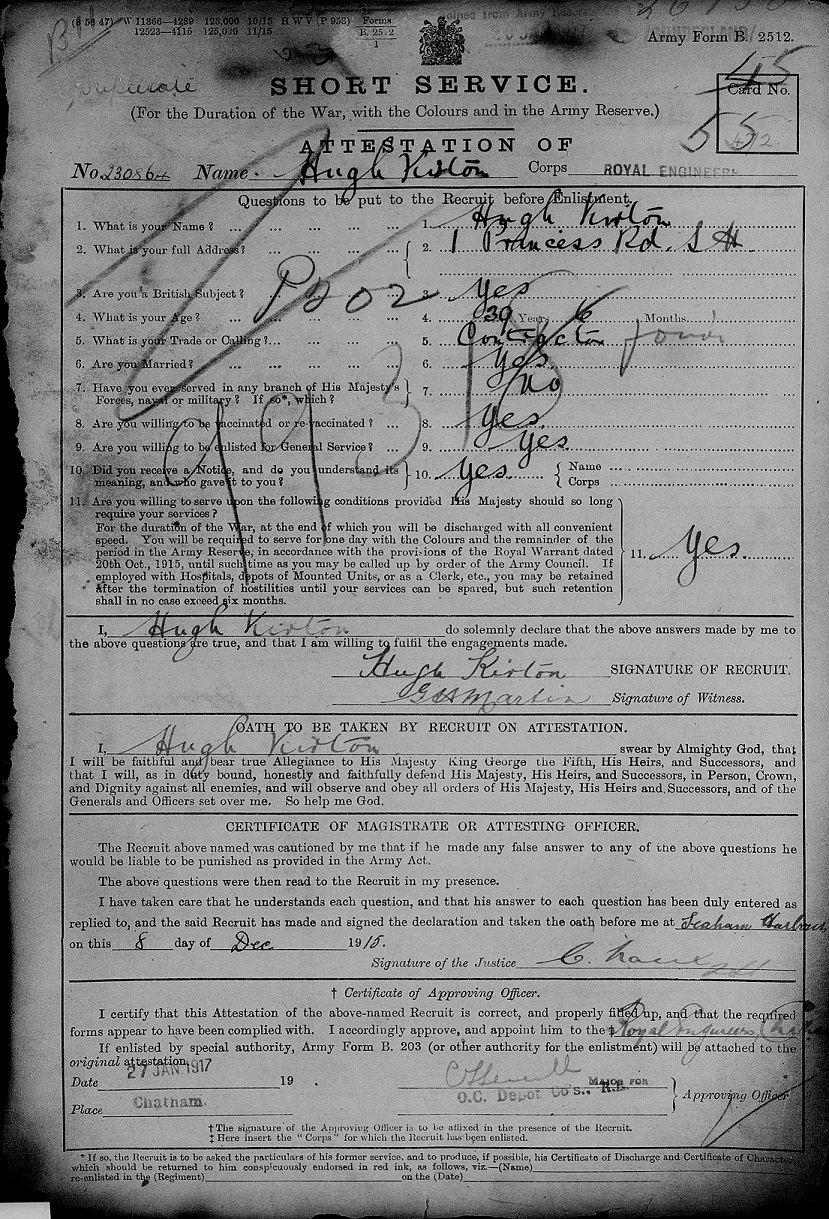 (8 58 47) W 11366—4289 125,000 10/15 H W V (P 953) Forms
12523—4115 125,000 11/15 B. 2512
1
Army Form B. 2512.
Duplicate
SHORT SERVICE.
(For the Duration of the War, with the Colours and in the Army Reserve.)
Card No.
55
ATTESTATION OF
No. 230864 Name Hugh Kirton Corps ROYAL ENGINEERS
Questions to be put to the Recruit before Enlistment.
1. What is your Name? ... ... ... ... 1. Hugh Kirton
2. What is your full Address? ... ... ... ... 2. 1 Princess Rd. S H
3. Are you a British Subject? ... ... ... 3. Yes
P202
4. What is your Age? ... ... ... ... 4. 39 Years 6 Months.
5. What is your Trade or Calling?... ... ... ... 5. Contractor
6. Are you Married? ... ... ... ... 6. Yes.
7. Have you ever served in any branch of His Majesty's 7. no
Forces, naval or military? If so*, which?
8. Are you willing to be vaccinated or re-vaccinated? ... 8. Yes.
9. Are you willing to be enlisted for General Service? ... 9. Yes.
10. Did you receive a Notice, and do you understand its 10. Yes. Name
meaning, and who gave it to you? Corps
11. Are you willing to serve upon the following conditions provided His Majesty should so long
require your services?
For the duration of the War, at the end of which you will be discharged with all convenient
speed. You will be required to serve for one day with the Colours and the remainder of the
period in the Army Reserve, in accordance with the provisions of the Royal Warrant dated
20th Oct., 1915, until such time as you may be called up by order of the Army Council. If 11. Yes.
employed with Hospitals, depots of Mounted Units, or as a Clerk, etc., you may be retained
after the termination of hostilities until your services can be spared, but such retention
shall in no case exceed six months.
I, Hugh Kirton do solemnly declare that the above answers made by me to
the above questions are true, and that I am willing to fulfil the engagements made.
Hugh Kirton SIGNATURE OF RECRUIT.
Martin Signature of Witness.
OATH TO BE TAKEN BY RECRUIT ON ATTESTATION.
I, Hugh Kirton swear by Almighty God, that
I will be faithful and bear true Allegiance to His Majesty King George the Fifth, His Heirs, and Successors, and
that I will, as in duty bound, honestly and faithfully defend His Majesty, His Heirs, and Successors, in Person, Crown,
and Dignity against all enemies, and will observe and obey all orders of His Majesty, His Heirs and Successors, and of the
Generals and Officers set over me. So help me God.
CERTIFICATE OF MAGISTRATE OR ATTESTING OFFICER.
The Recruit above named was cautioned by me that if he made any false answer to any of the above questions he
would be liable to be punished as provided in the Army Act.
The above questions were then read to the Recruit in my presence.
I have taken care that he understands each question, and that his answer to each question has been duly entered as
replied to, and the said Recruit has made and signed the declaration and taken the oath before me at Seaham Harbour
on this 8 day of Dec 1915.
Signature of the Justice
† Certificate of Approving Officer.
I certify that this Attestation of the above-named Recruit is correct, and properly filled up, and that the required
forms appear to have been complied with. I accordingly approve, and appoint him to the‡ Royal Engineers
If enlisted by special authority, Army Form B. 203 (or other authority for the enlistment) will be attached to the
original attestation.
Date 27 JAN 1917 19 . MAJOR FOR
O.C. DEPOT CO'S., R.E. Approving Officer.
Place Chatham.
† The signature of the Approving Officer is to be affixed in the presence of the Recruit.
‡ Here insert the "Corps" for which the Recruit has been enlisted.
* If so, the Recruit is to be asked the particulars of his former service, and to produce, if possible, his Certificate of Discharge and Certificate of Character,
which should be returned to him conspicuously endorsed in red ink, as follows, viz.—(Name)
re-enlisted in the (Regiment) on the (Date)